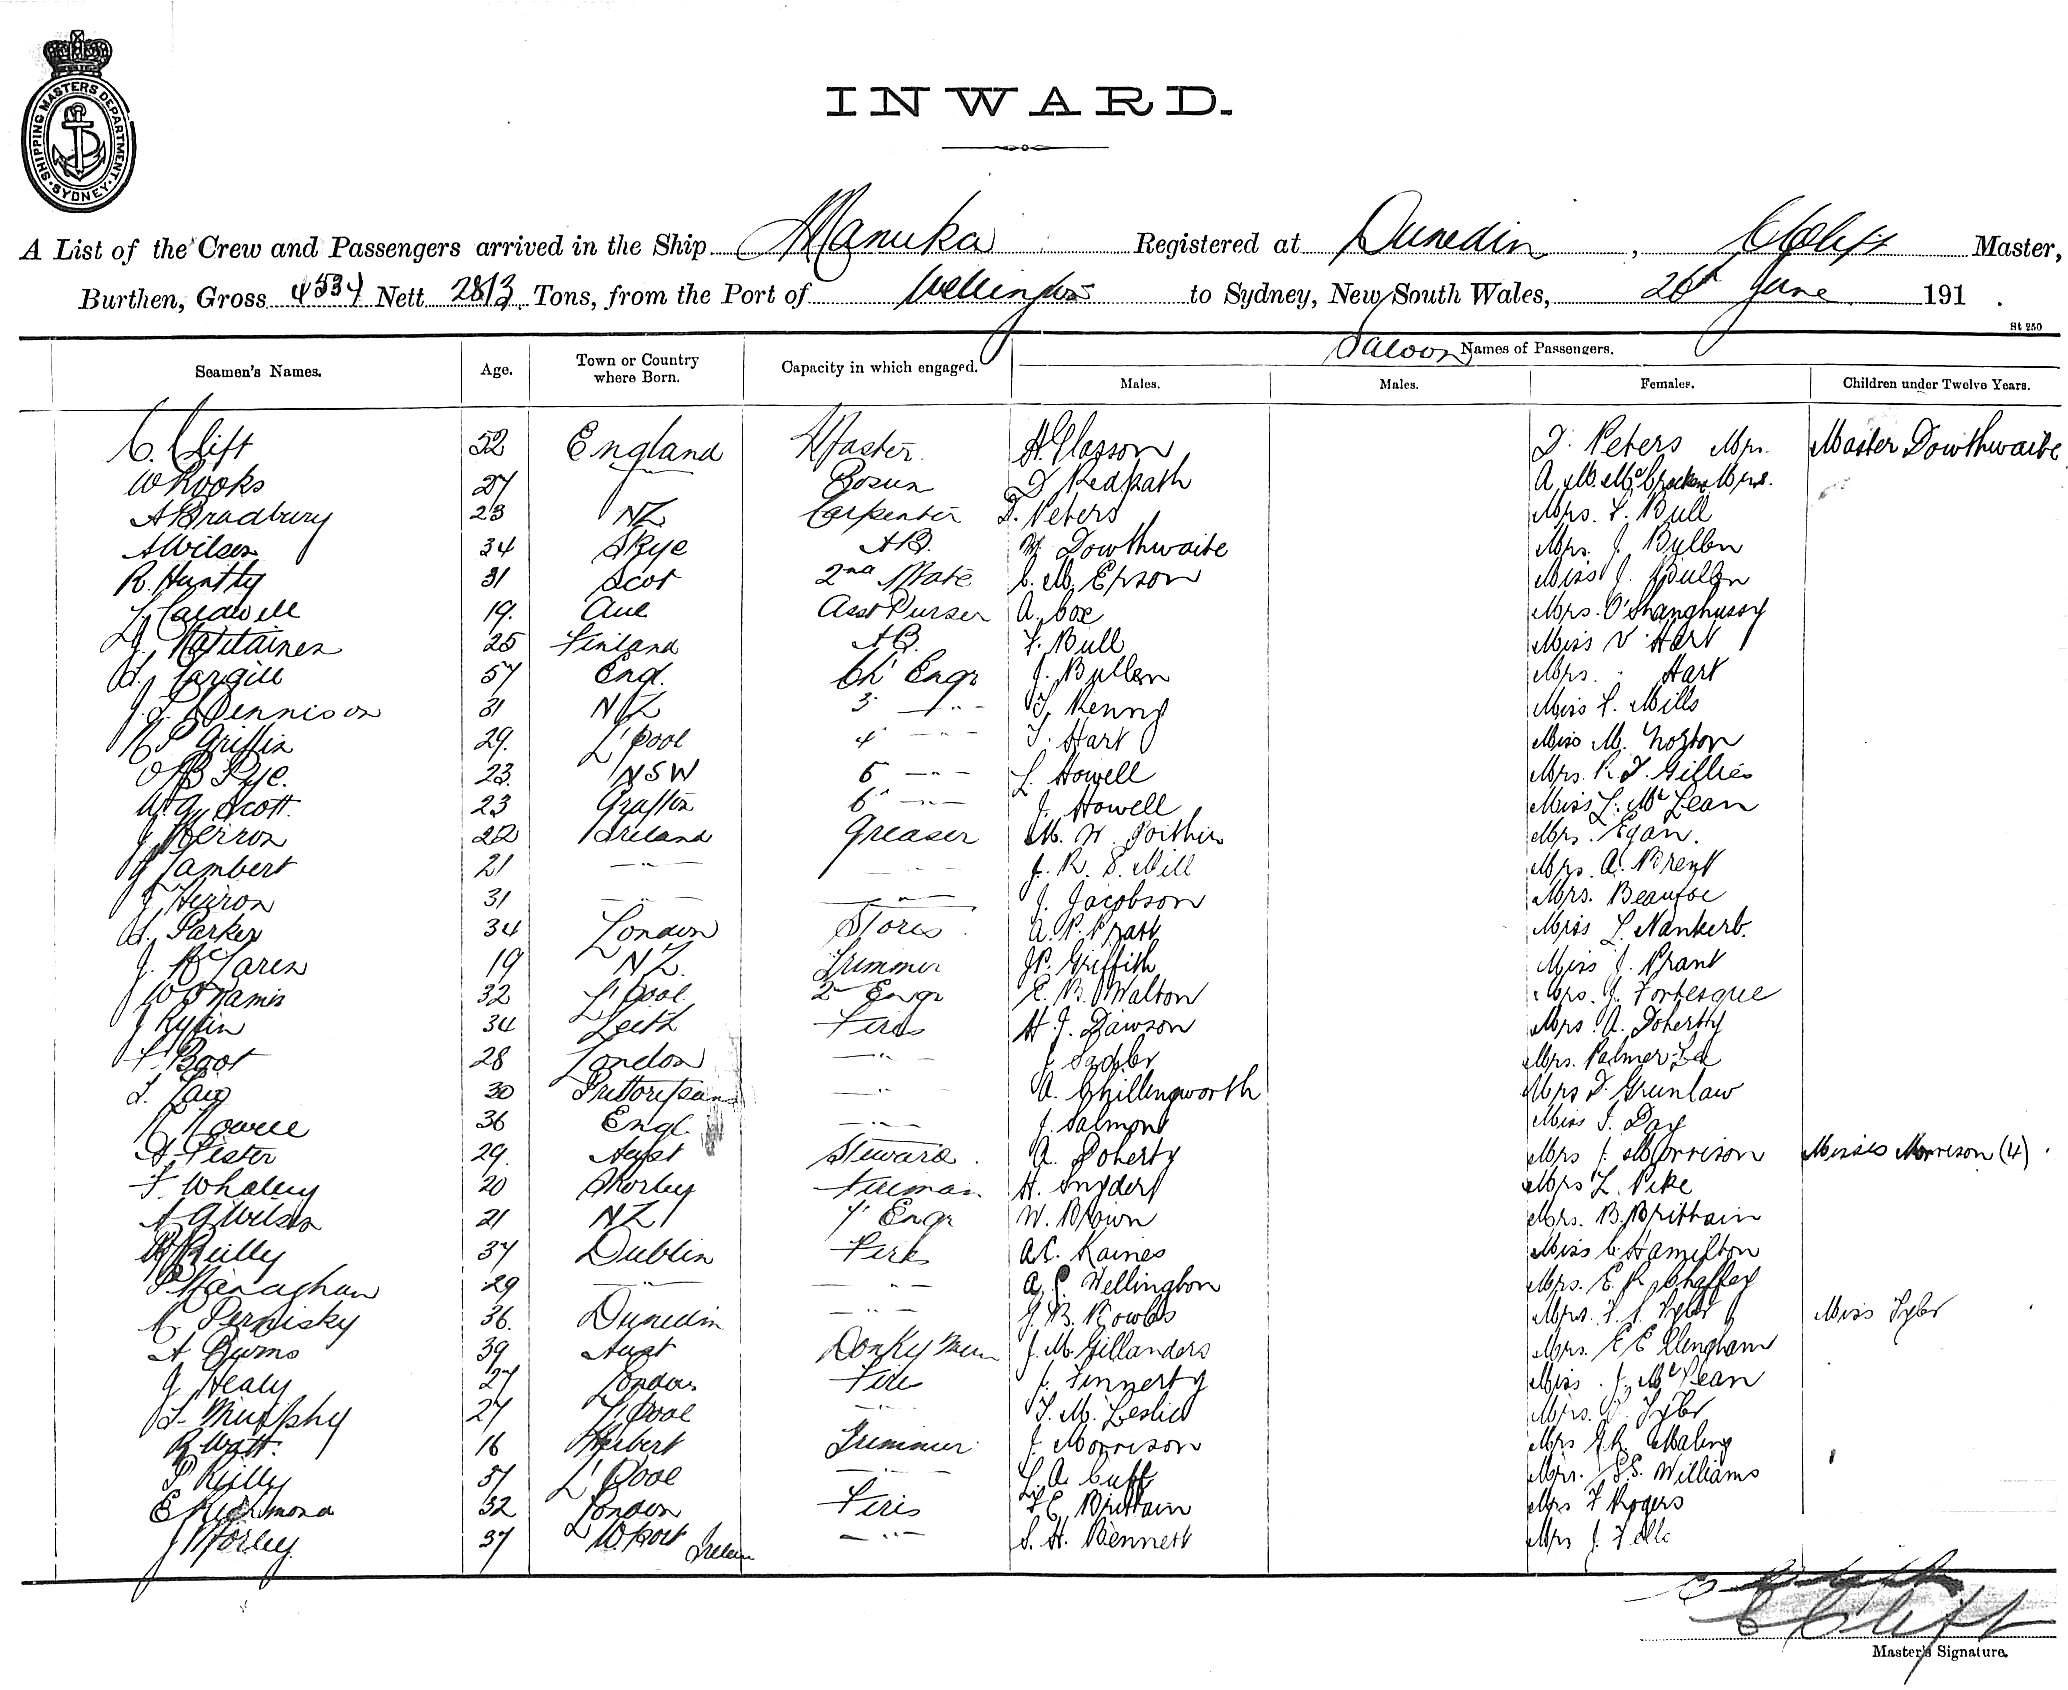 SHIPPING MASTERS DEPARTMENT. SYDNEY.
INWARD.
A List of the Crew and Passengers arrived in the Ship Manuka Registered at Dunedin, C Clift Master,
Burthen, Gross 4534 Nett 2813 Tons, from the Port of Wellington to Sydney, New South Wales, 26th June 191 .
St 250
Seamen's Names. Age. Town or Country where Born. Capacity in which engaged. Saloon Names of Passengers.
Males. Males. Females. Children under Twelve Years.
C. Clift 52 England Master H. Glasson D. Peters Mrs. Master Dowthwaite
W Rooks 27 Bosun D Redpath A. M. Mrs.
A Bradbury 23 NZ Carpenter D. Peters Mrs. F. Bull
A Wilson 34 Skye AB. W Dowthwaite Mrs. J. Bullen
R. Huntly 31 Scot 2nd Mate C. M. Epson Miss J. Bullen
L Caldwell 19. Auc Asst Purser A. Cox Mrs. O'Shanghussy
25 Finland AB. F. Bull Miss V. Hart
Cargill 57 Engl. Ch Engr J. Bullen Mrs. Hart
J. L. Dennison 31 NZ 3 -"- T. Kenny Miss L. Mills
Griffin 29. L'Pool 4 -"- T. Hart Miss M. Norton
O B Pye. 23. NSW 5 -"- L. Howell Mrs. R. D. Gillies
W. G. Scott. 23 Grafton 6 -"- J. Howell Miss L. McLean
J Herron 22 Ireland Greaser M. W. Mrs. Egan.
J Lambert 21 -"- -"- J. R. S. Mill Mrs. A. Brent
J Herron 31 -"- -"- J. Jacobson Mrs. Beaufoe
H. Parker 34 London Stores A. P. Pratt Miss L. Nankerb.
J. McLaren 19 NZ. Trimmer J.P. Griffith Miss J. Prant
32 L'Pool. 2 Engr E. B. Walton Mrs. J. Fortesque
J 34 Leith Fires H. J. Dawson Mrs. A. Doherty
F. Boot 28 London -"- J. Sadler Mrs. Palmer
30 -"- A. Chillingworth Mrs D. Grunlaw
36 Engl. -"- J. Salmon Miss I. Day
A Lister 29. Aust Steward. A. Doherty Mrs J. Morrison Misses Morrison (4).
F. Whaley 20 Chorley Fireman H. Snyder Mrs L. Pike
A G Wilson 21 NZ 7 Engr W. Brown Mrs. B. Brittain
Reilly 37 Dublin Firs A.C. Kaines Miss C. Hamilton
P Managhan 29 -"- -"- A. E. Wellington Mrs. E. R. Chaffey
Pernisky 36. Dunedin -"- G. B. Rowles Mrs. F. J. Tyler Miss Tyler
A Burns 39 Aust Donky Man J. M. Gillanders Mrs. E E Clengham
J Healy 27 London Fire J. Finnerty Miss. J. McLean
L. Murphy 27 L'Pool -"- T. M. Leslie Mrs. Tyler
R Watt. 18 Herbert Trimmer J. Morrison Mrs G.R. Maling
P Reilly 37 L'Pool -"- L. A. Cuff Mrs. E.S. Williams
E Richmond 32 London Firis F.C. Brittain Mrs F Rogers
J Morley 37 Irelan -"- S. H. Bennett Mrs J.
C Clift
C Clift
Master's Signature.